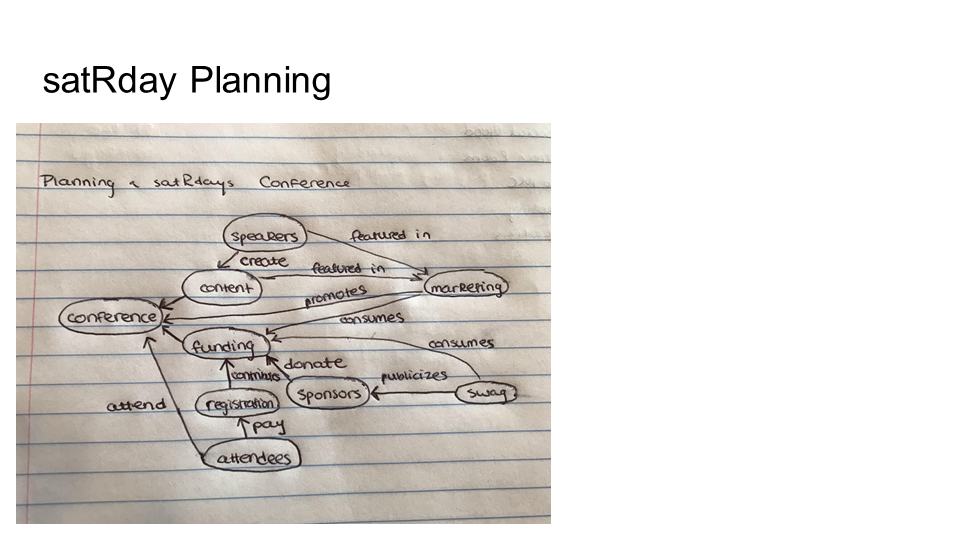 satRday Planning
Planning a satRdays Conference
speakers
featured in
create
featured in
content
marketing
promotes
conference
consumes
funding
consumes
donate
publicizes
sponsors
swag
attend
registration
pay
attendees